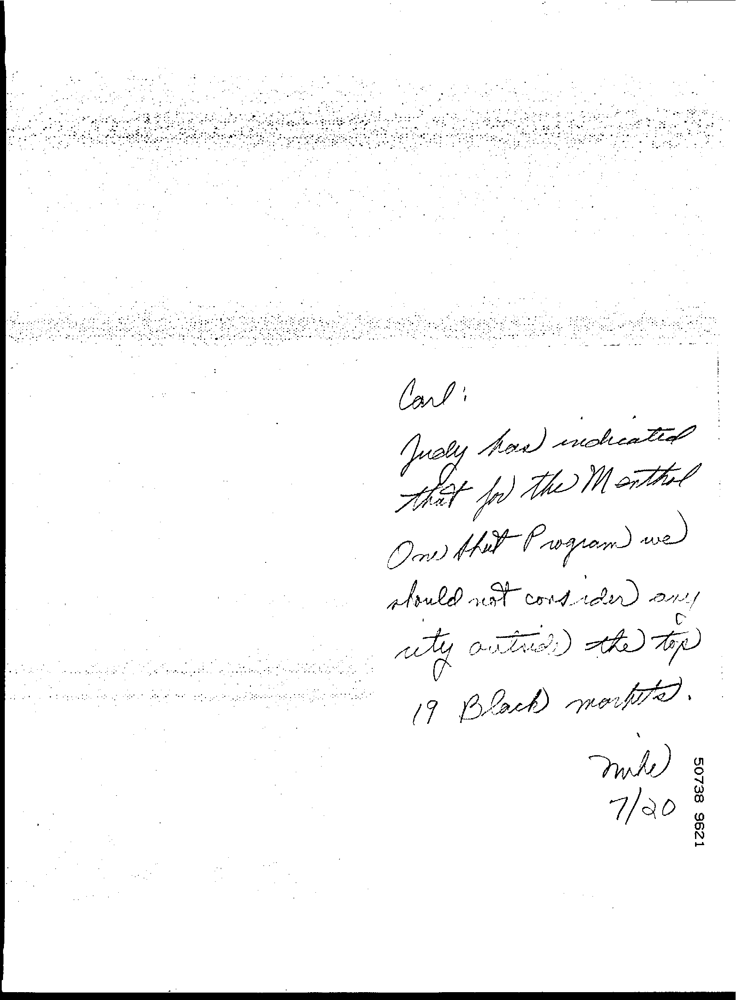 Carl:
Judy has indicated
that for the Menthol
One Shot Program we
should not consider any
city outside the top
19 Black markets.
Mike
7/20
50738 9621